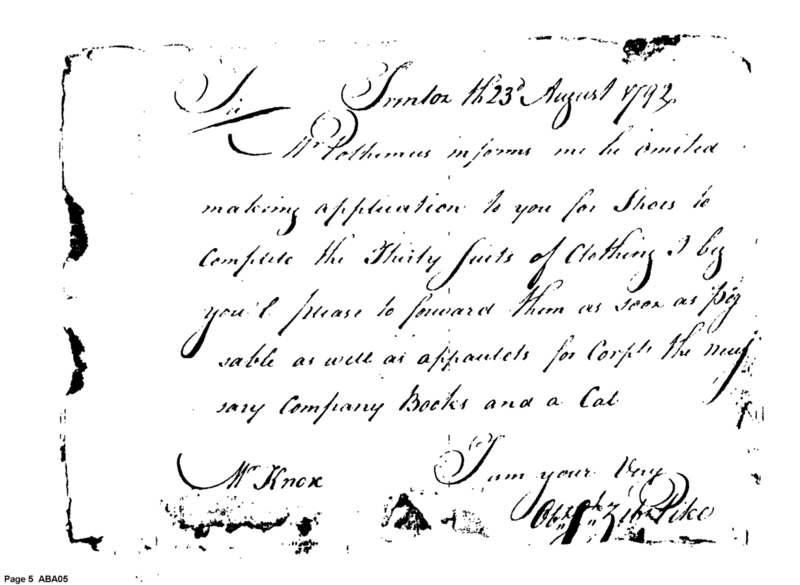 Sir Trenton th 23d August 1792.
Mr Polhemus informs me he omited
making application to you for Shoes to
Complete the Thirty Suits of Clothing I beg
you'l please to forward them as soon as pos
sable as well as appaulets for Corpls the neces
sary Company Books and a Cat
Mr Knox I am your Very
Obt Zebn Pike
Page 5 ABA05